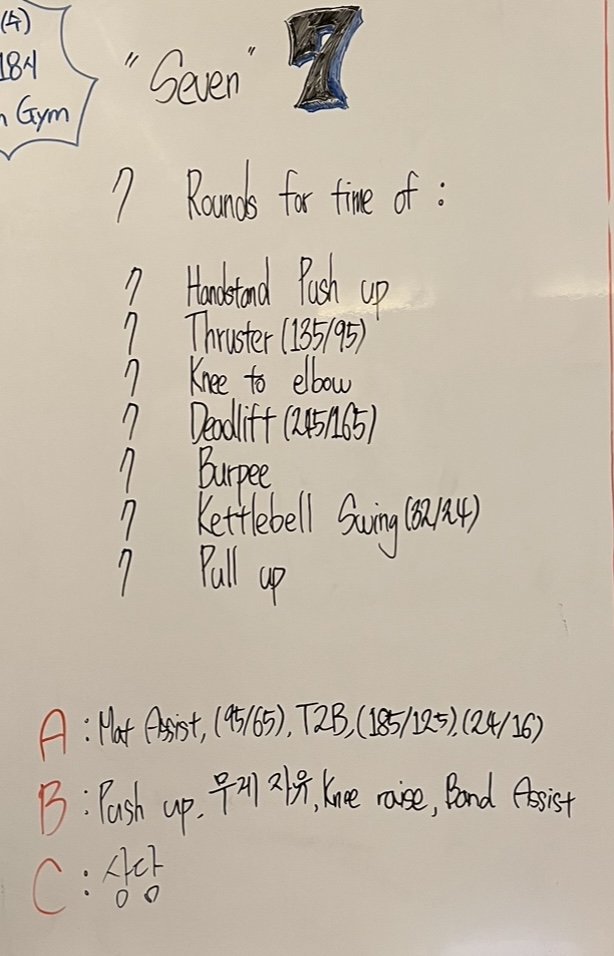 (수)
18시
Gym
"Seven" 7
7 Rounds for time of :
7 Handstand Push up
7 Thruster (135/95)
7 Knee to elbow
7 Deadlift (245/165)
7 Burpee
7 Kettlebell Swing (32/24)
7 Pull up
A : Mat Assist, (95/65), T2B, (185/125), (24/16)
B : Push up, 무게 자유, Knee raise, Band Assist
C : 상담